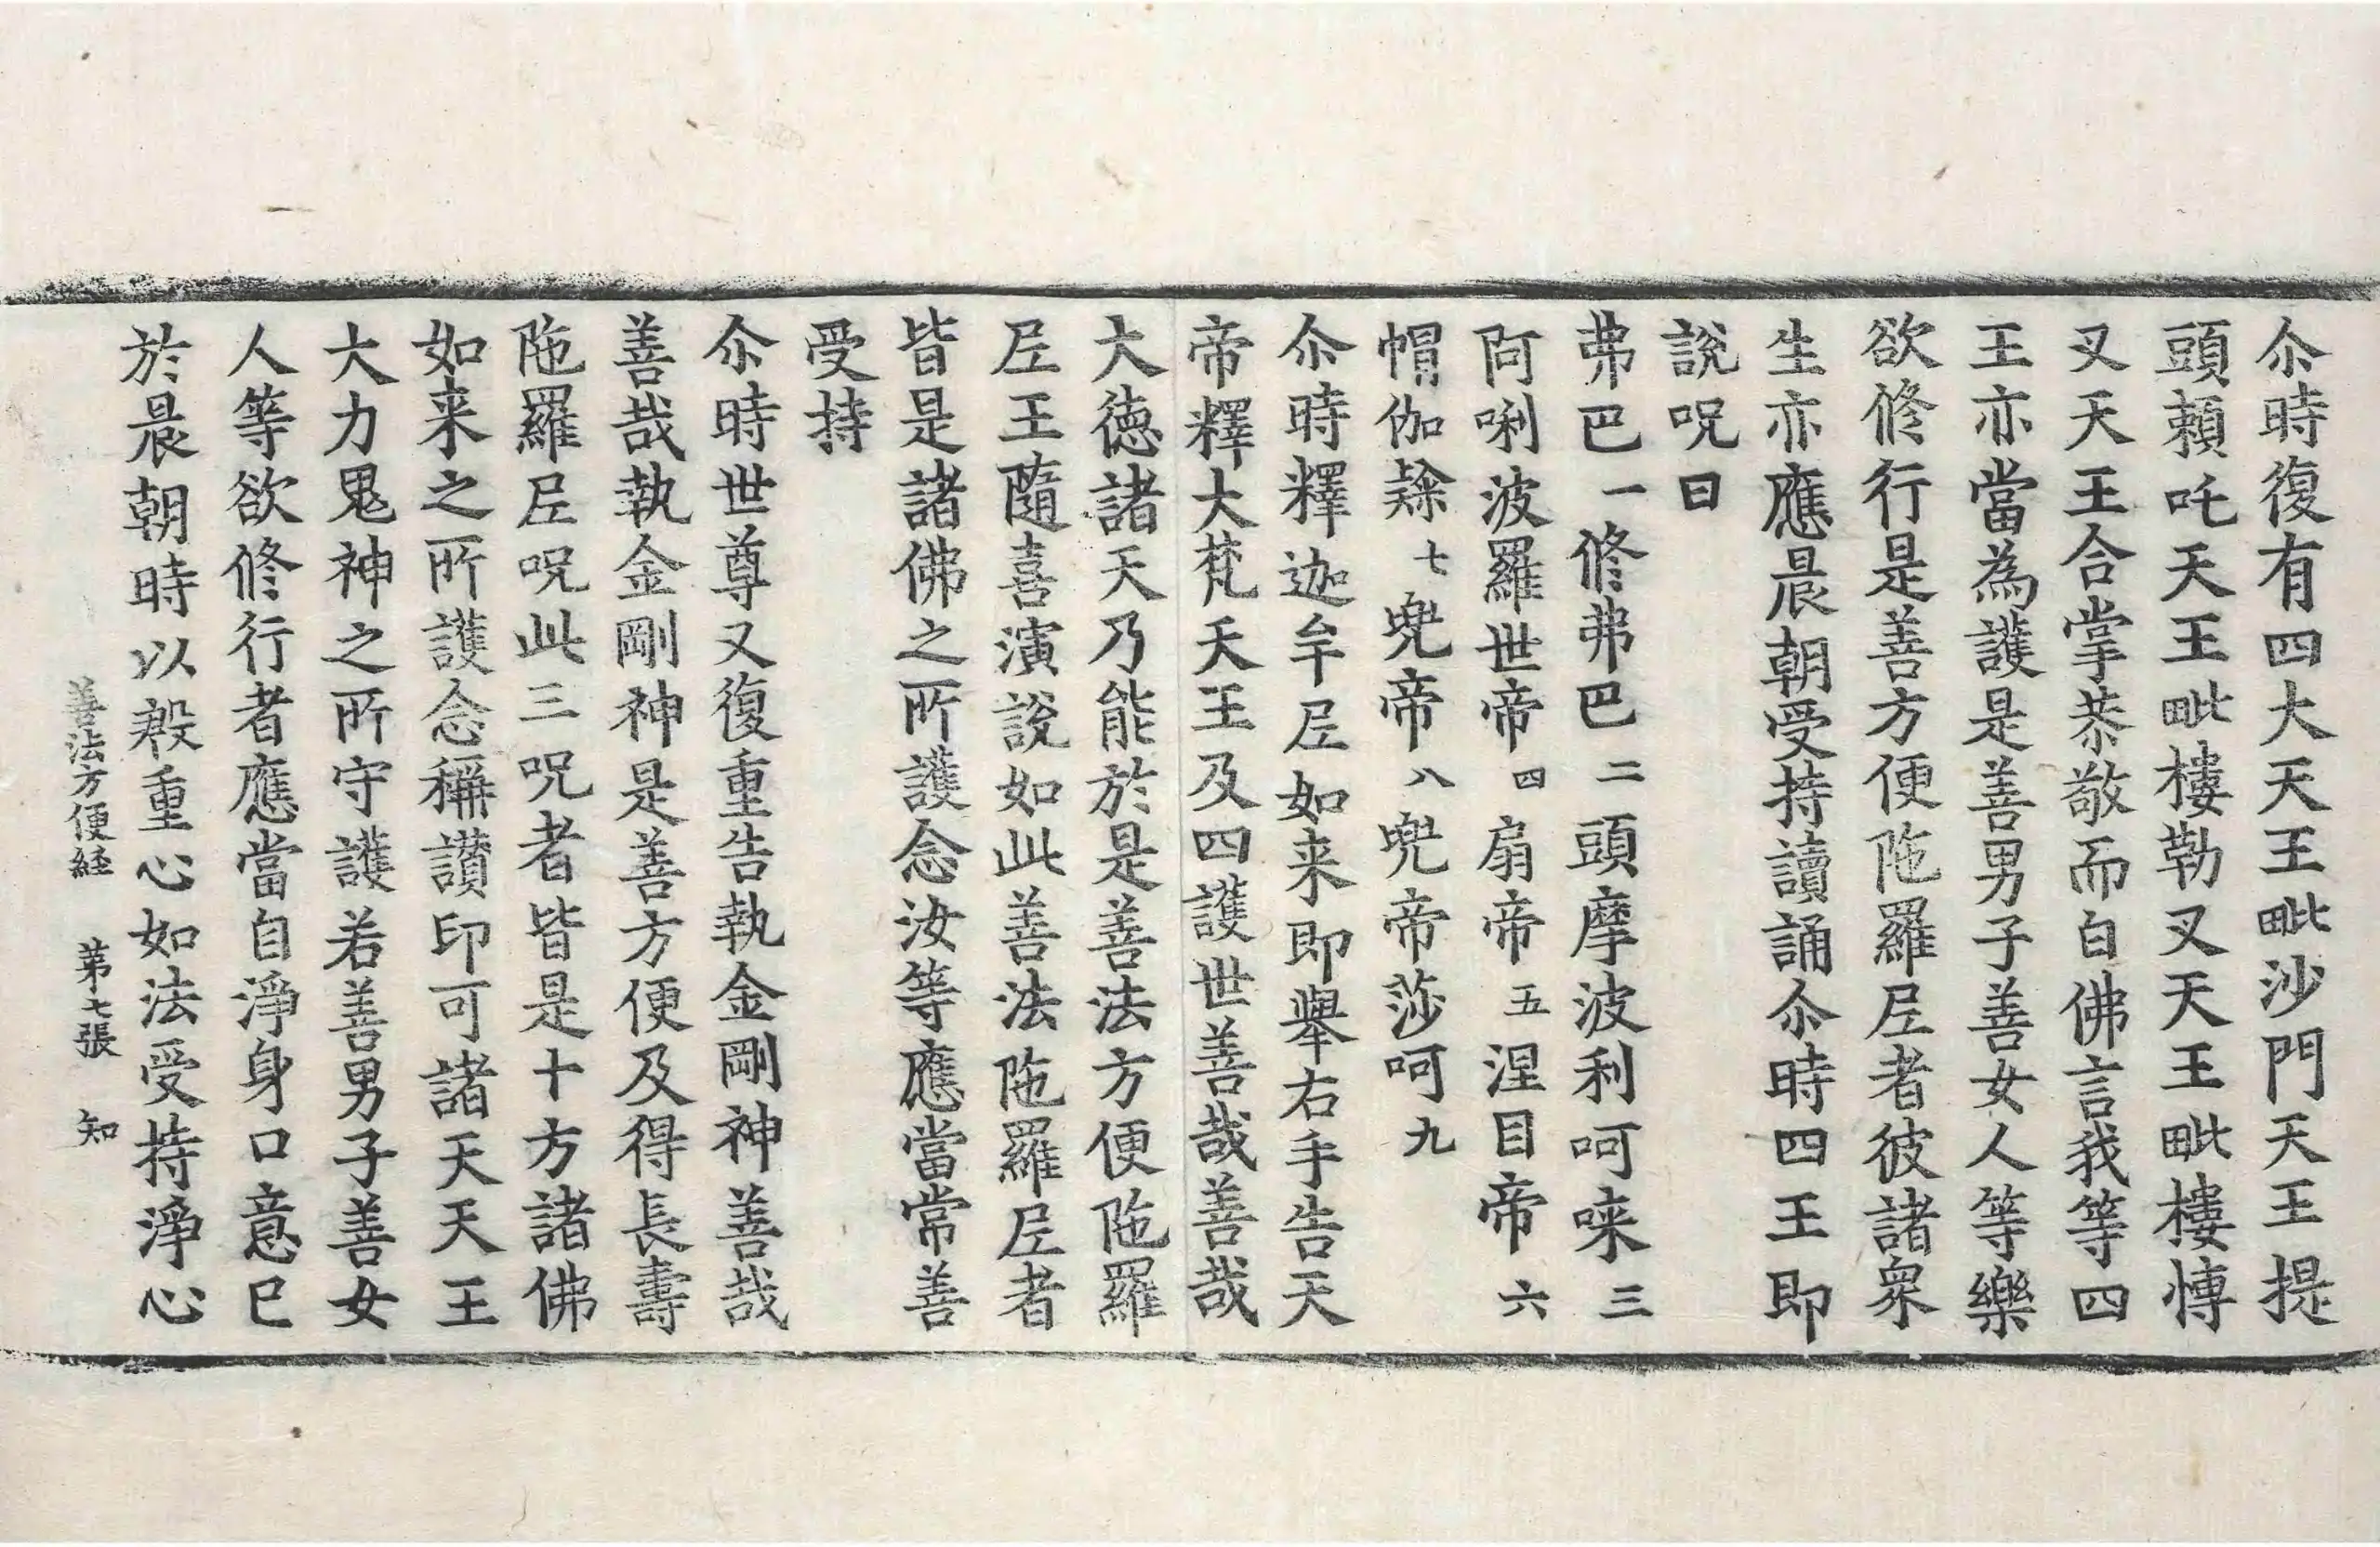 尒時復有四大天王毗沙門天王提
頭賴吒天王毗樓勒叉天王毗樓愽
叉天王合掌恭敬而白佛言我等四
王亦當為護是善男子善女人等樂
欲修行是善方便陁羅𡰱者彼諸衆
生亦應晨朝受持讀誦尒時四王即
說呪曰
弗巴一修弗巴二頭摩波利呵唻三
阿唎波羅世帝四扇帝五涅目帝六
帽伽𨽻七兠帝八兠帝莎呵九
尒時釋迦牟𡰱如来即舉右手告天
帝釋大梵天王及四護世善哉善哉
大德諸天乃能於是善法方便陁羅
𡰱王隨喜演說如此善法陁羅𡰱者
皆是諸佛之所護念汝等應當常善
受持
尒時世尊又復重告執金剛神善哉
善哉執金剛神是善方便及得長壽
陁羅𡰱呪此三呪者皆是十方諸佛
如来之所護念稱讃印可諸天天王
大力鬼神之所守護若善男子善女
人等欲修行者應當自淨身口意已
於晨朝時以慇重心如法受持淨心
善法方便経 第七張 知